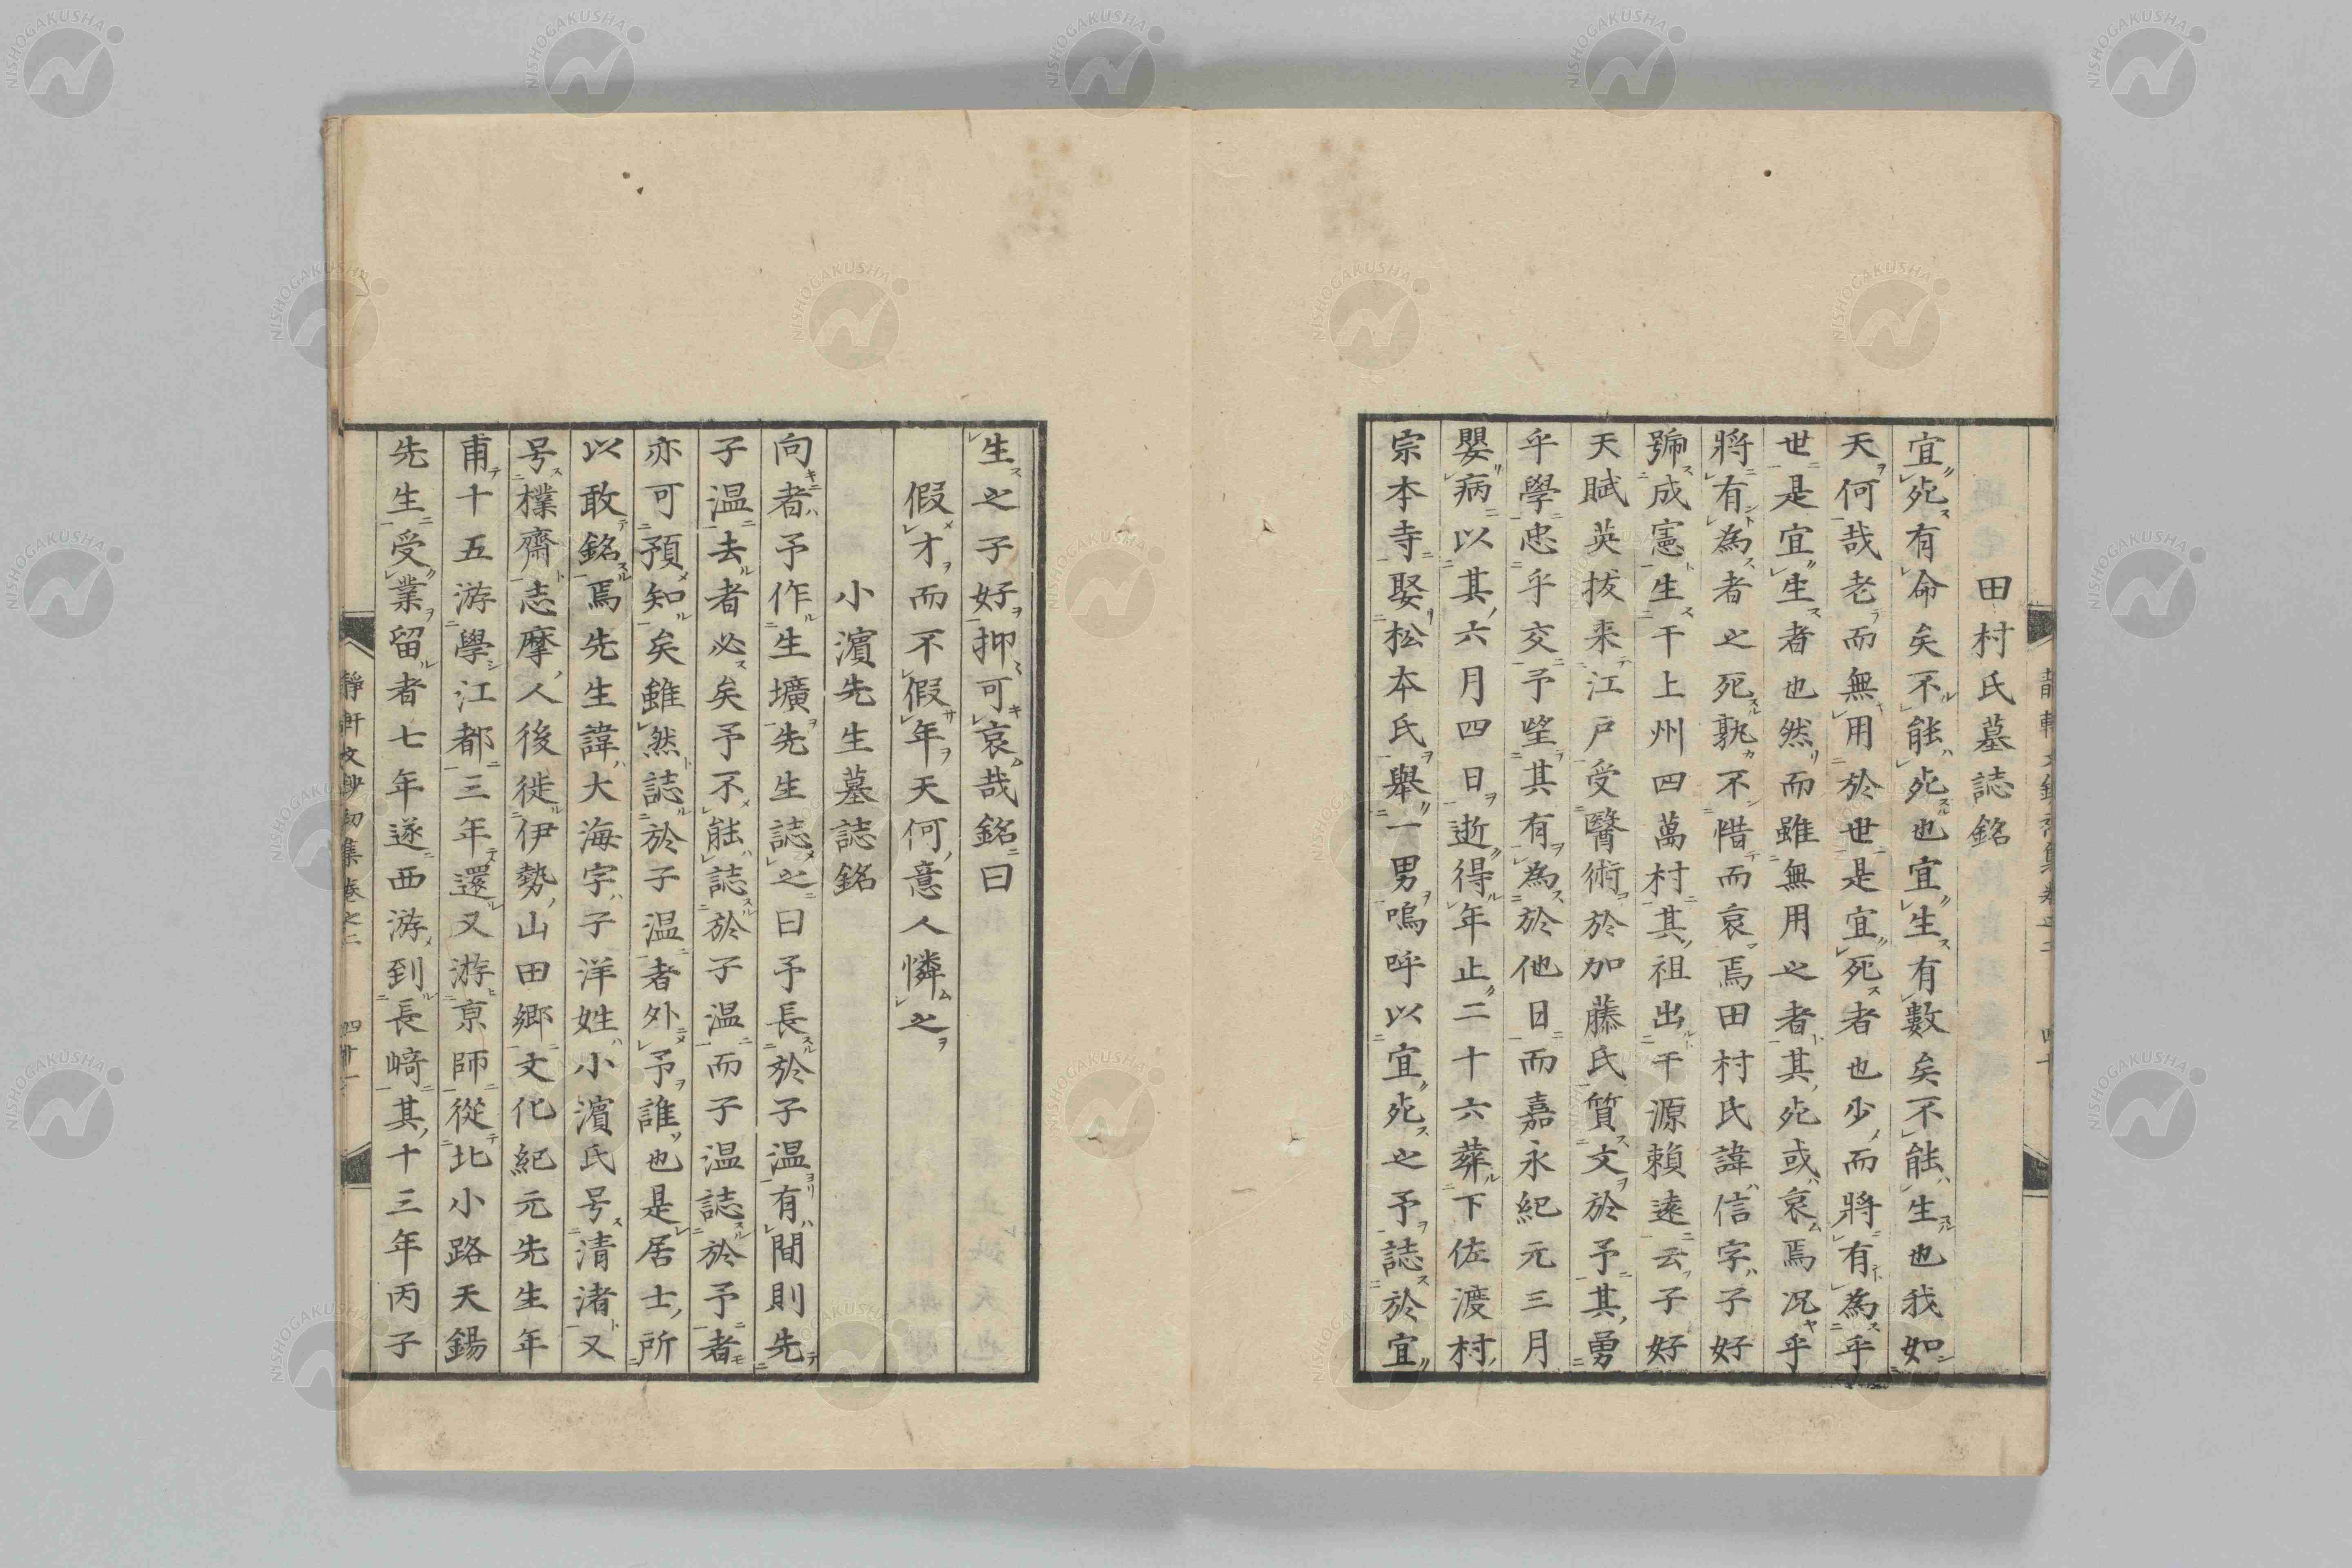 田村氏墓誌銘
宜死有命矣不能死也宜生有數矣不能生也我如
天何哉老而無用於世是宜死者也少而將有為乎
世是宜生者也然而雖無用之者其死或哀焉况乎
將有為者之死孰不惜而哀焉田村氏諱信字子好
號成憲生干上州四萬村其祖出干源頼遠云子好
天賦英拔来江戸受醫術於加藤氏質文於予其勇
乎學忠乎交予望其有為於他日而嘉永紀元三月
嬰病以其六月四日逝得年止二十六葬下佐渡村
宗本寺娶松本氏舉一男嗚呼以宜死之予誌於宜
生之子好抑可哀哉銘曰
假才而不假年天何意人憐之
小濵先生墓誌銘
向者予作生壙先生誌之曰予長於子温有間則先
子温去者必矣予不能誌於子温而子温誌於予者
亦可預知矣雖然誌於子温者外予誰也是居士所
以敢銘焉先生諱大海字子洋姓小濵氏号清渚又
号樸齋志摩人後徙伊勢山田郷文化紀元先生年
甫十五游學江都三年還又游京師從北小路天錫
先生受業留者七年遂西游到長﨑其十三年丙子
静軒文鈔初集巻之二 四十一
NISHOGAKUSHA